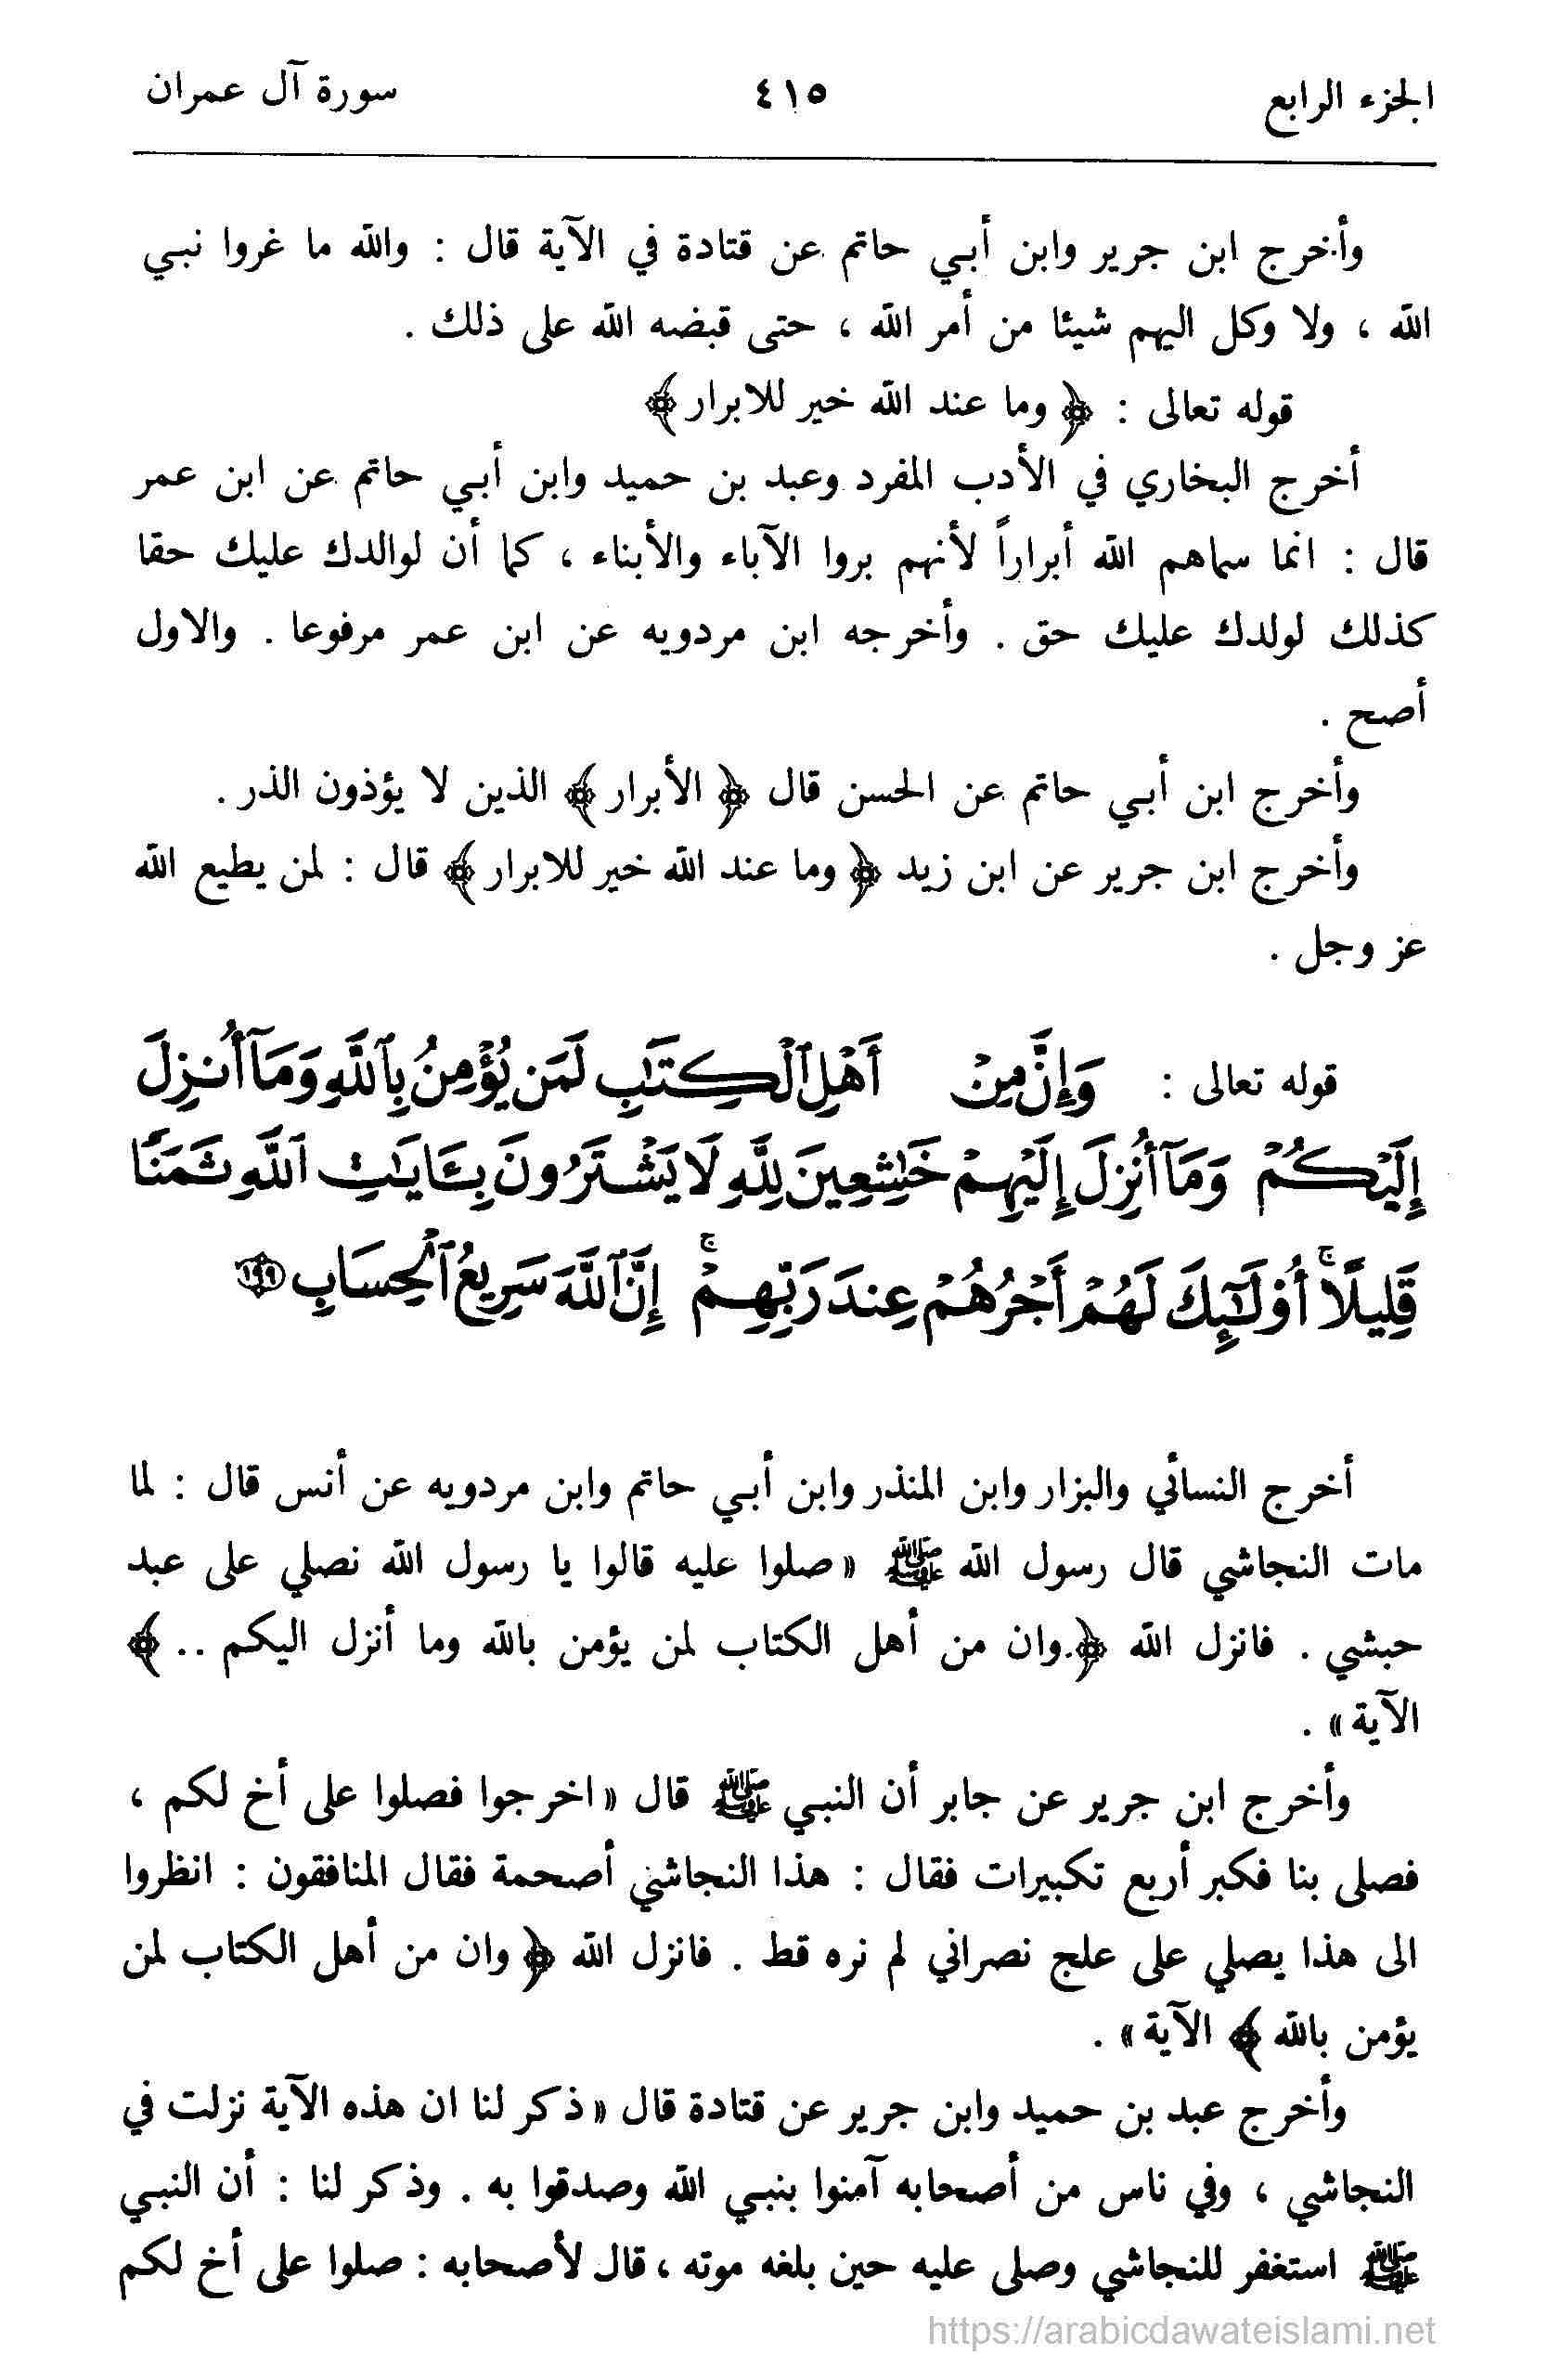 الجزء الرابع ٤١٥ سورة آل عمران
وأخرج ابن جرير وابن أبي حاتم عن قتادة في الآية قال : والله ما غروا نبي
الله ، ولا وكل اليهم شيئا من أمر الله ، حتى قبضه الله على ذلك .
قوله تعالى : ﴿ وما عند الله خير للابرار ﴾
أخرج البخاري في الأدب المفرد وعبد بن حميد وابن أبي حاتم عن ابن عمر
قال : انما سماهم الله أبراراً لأنهم بروا الآباء والأبناء ، كما أن لوالدك عليك حقا
كذلك لولدك عليك حق . وأخرجه ابن مردويه عن ابن عمر مرفوعا . والاول
أصح .
وأخرج ابن أبي حاتم عن الحسن قال ﴿ الأبرار ﴾ الذين لا يؤذون الذر .
وأخرج ابن جرير عن ابن زيد ﴿ وما عند الله خير للابرار ﴾ قال : لمن يطيع الله
عز وجل .
قوله تعالى : وَإِنَّ مِنْ أَهْلِ ٱلْكِتَٰبِ لَمَن يُؤْمِنُ بِٱللَّهِ وَمَآ أُنزِلَ
إِلَيْكُمْ وَمَآ أُنزِلَ إِلَيْهِمْ خَٰشِعِينَ لِلَّهِ لَا يَشْتَرُونَ بِـَٔايَٰتِ ٱللَّهِ ثَمَنًا
قَلِيلًا ۚ أُو۟لَٰٓئِكَ لَهُمْ أَجْرُهُمْ عِندَ رَبِّهِمْ ۚ إِنَّ ٱللَّهَ سَرِيعُ ٱلْحِسَابِ ١٩٩
أخرج النسائي والبزار وابن المنذر وابن أبي حاتم وابن مردويه عن أنس قال : لما
مات النجاشي قال رسول الله ﷺ « صلوا عليه قالوا يا رسول الله نصلي على عبد
حبشي . فانزل الله ﴿ وان من أهل الكتاب لمن يؤمن بالله وما أنزل اليكم .. ﴾
الآية » .
وأخرج ابن جرير عن جابر أن النبي ﷺ قال « اخرجوا فصلوا على أخ لكم ،
فصلى بنا فكبر أربع تكبيرات فقال : هذا النجاشي أصحمة فقال المنافقون : انظروا
الى هذا يصلي على علج نصراني لم نره قط . فانزل الله ﴿ وان من أهل الكتاب لمن
يؤمن بالله ﴾ الآية » .
وأخرج عبد بن حميد وابن جرير عن قتادة قال « ذكر لنا ان هذه الآية نزلت في
النجاشي ، وفي ناس من أصحابه آمنوا بنبي الله وصدقوا به . وذكر لنا : أن النبي
ﷺ استغفر للنجاشي وصلى عليه حين بلغه موته ، قال لأصحابه : صلوا على أخ لكم
https://arabicdawateislami.net